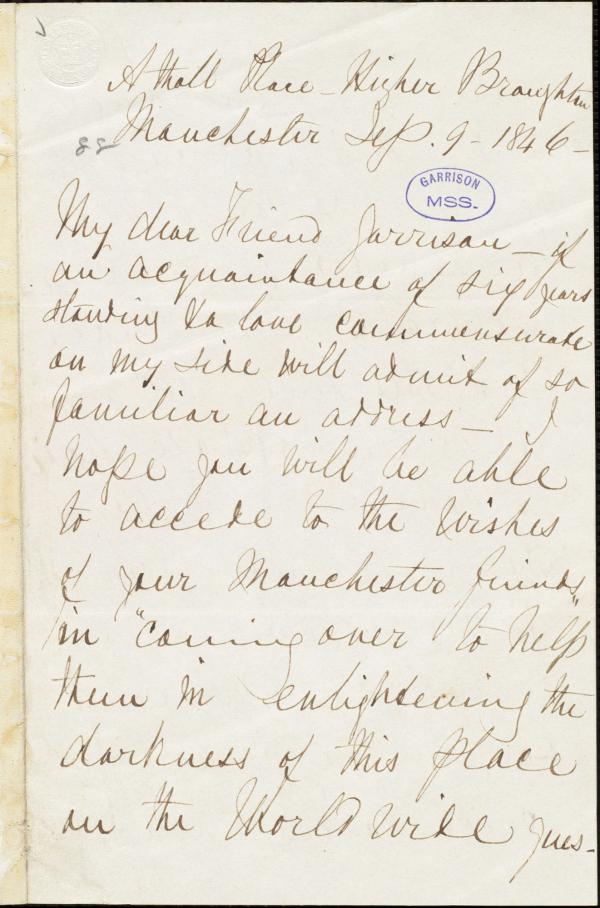 Atholl Place - Higher Broughton
Manchester Sep. 9 - 1846 -
88
GARRISON
MSS.
My dear Friend Garrison - if
an acquaintance of six years
standing & a love commensurate
on my side will admit of so
familiar an address - I
hope you will be able
to accede to the wishes
of your Manchester friends
in "coming over to help"
them in enlightening the
darkness of this place
on the World wide ques-